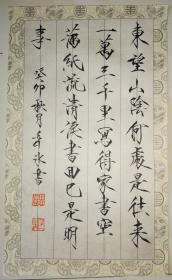 東望山陰何處是往來
一萬三千里寫得家書空
滿紙流清淚書回已是明
事 癸卯秋月 書